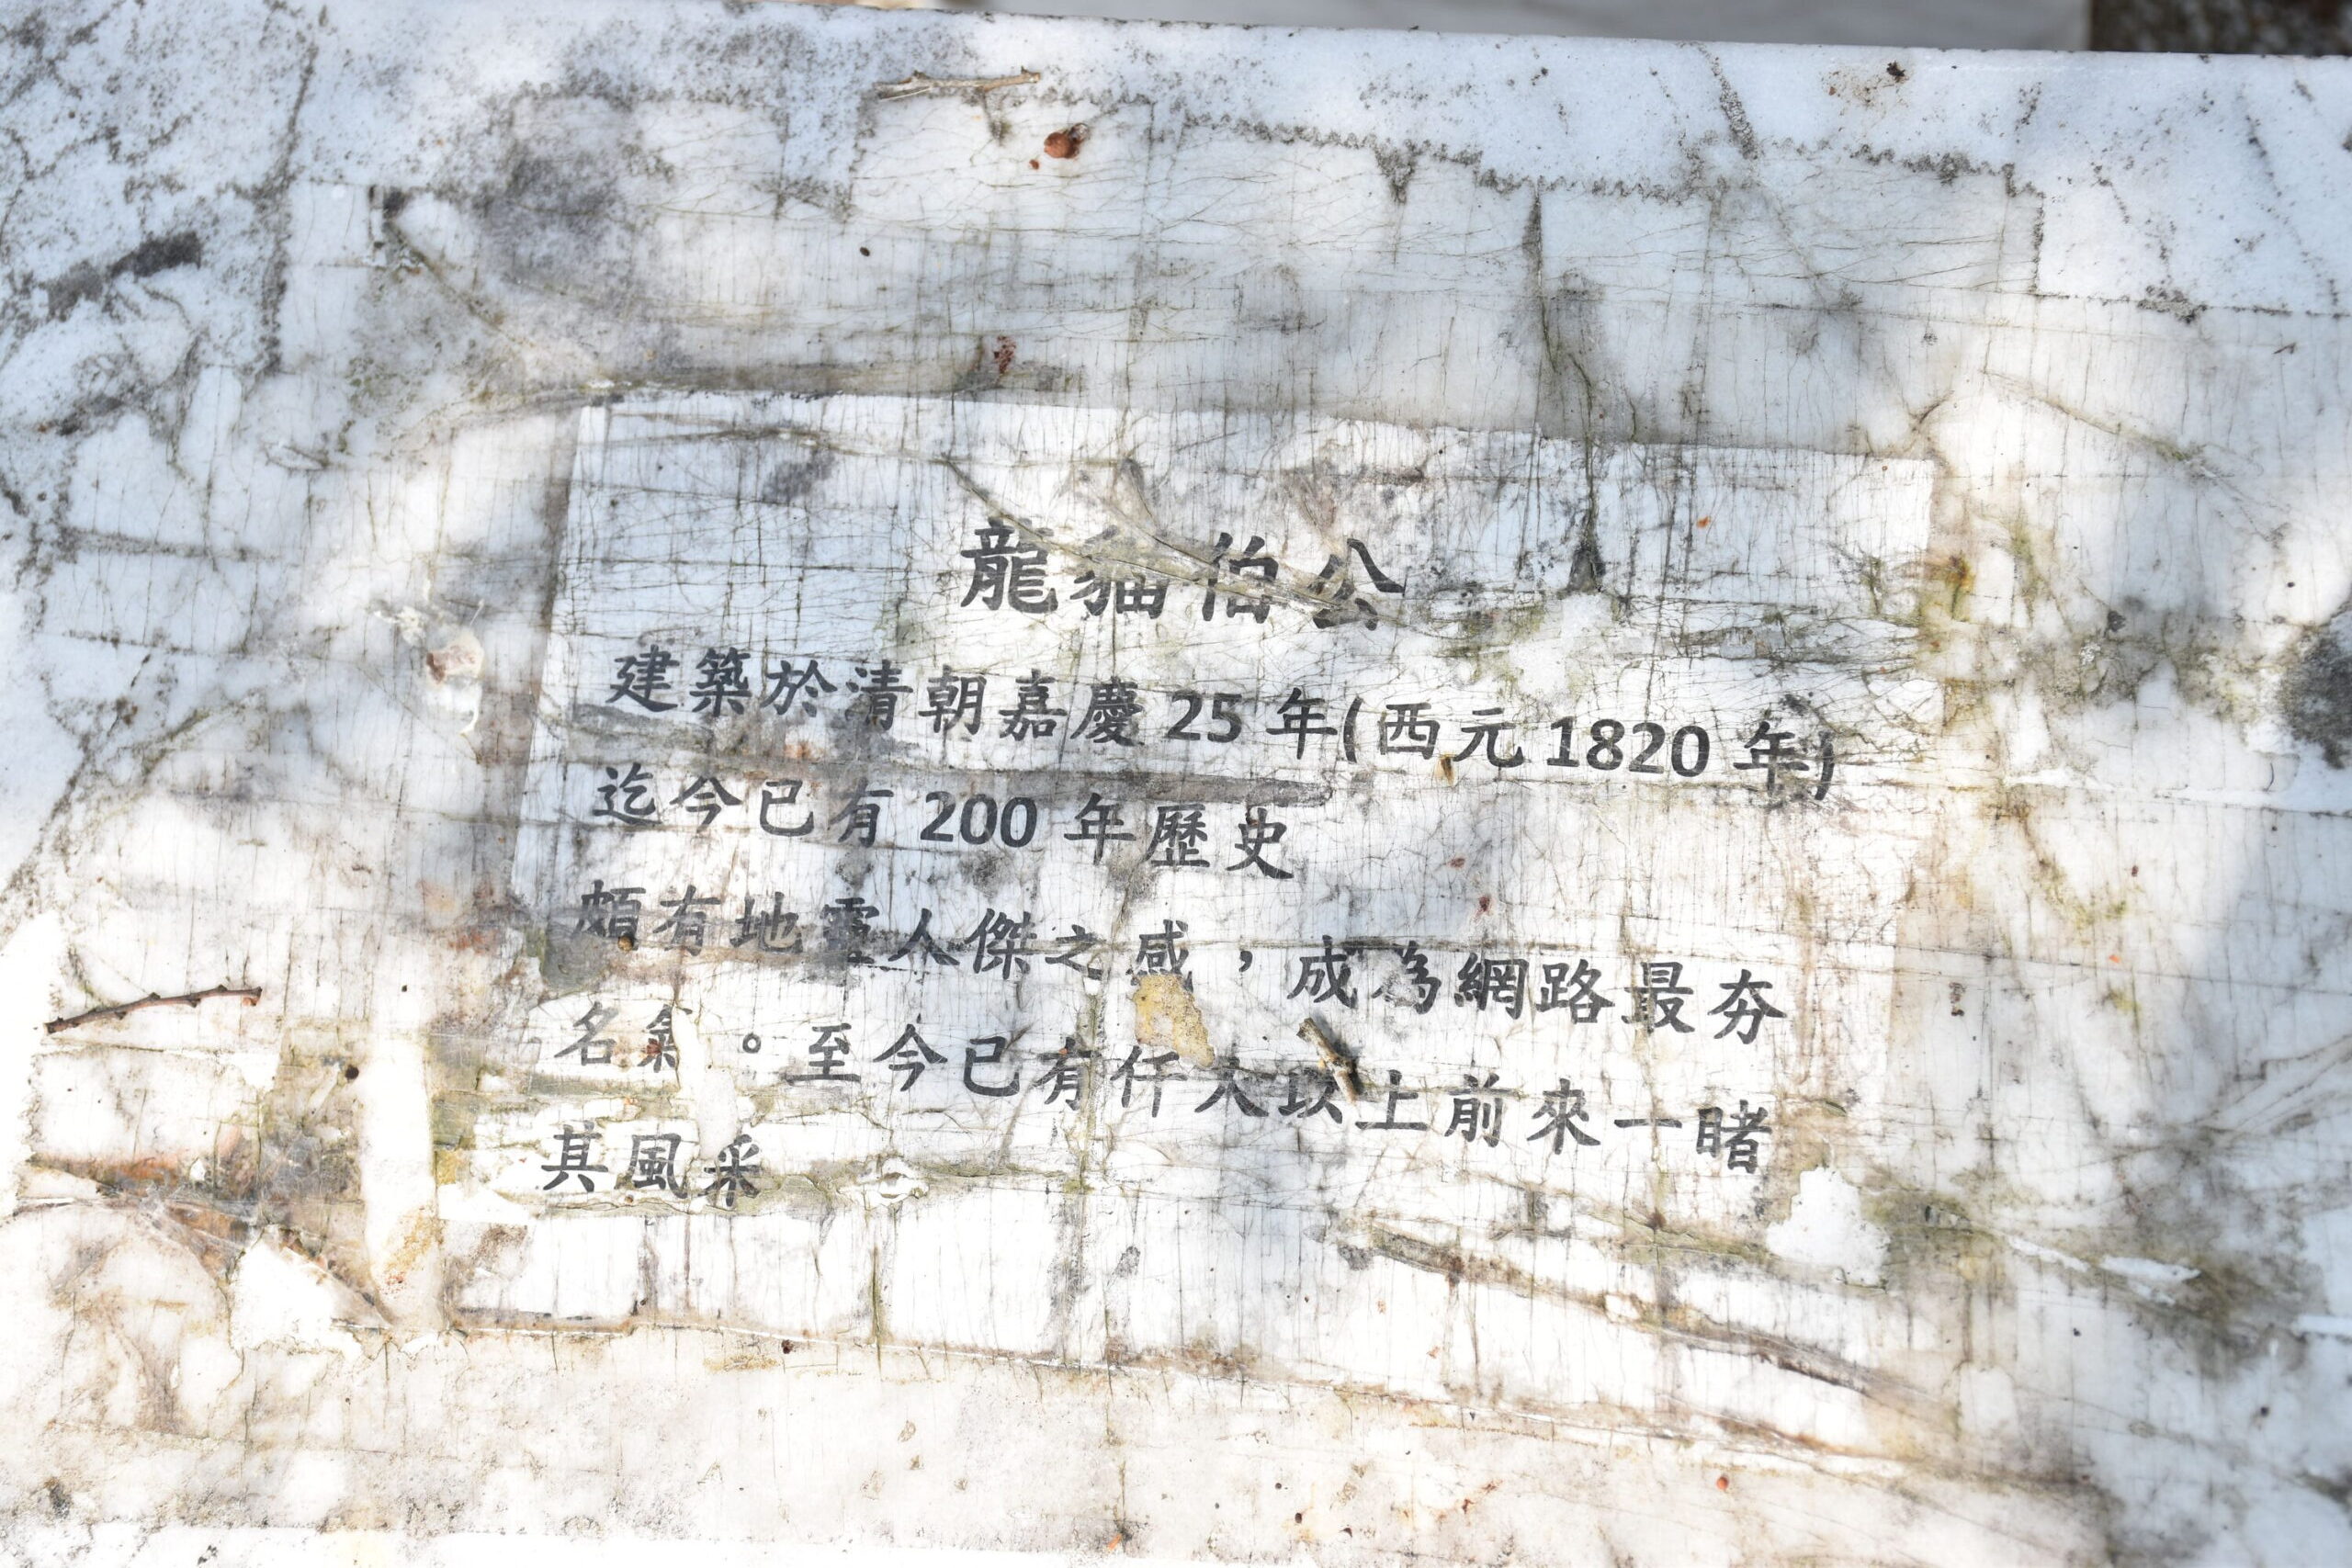 龍貓伯公
建築於清朝嘉慶25年(西元1820年)
迄今已有200年歷史
頗有地靈人傑之感，成為網路最夯
名氣。至今已有仟人以上前來一睹
其風采